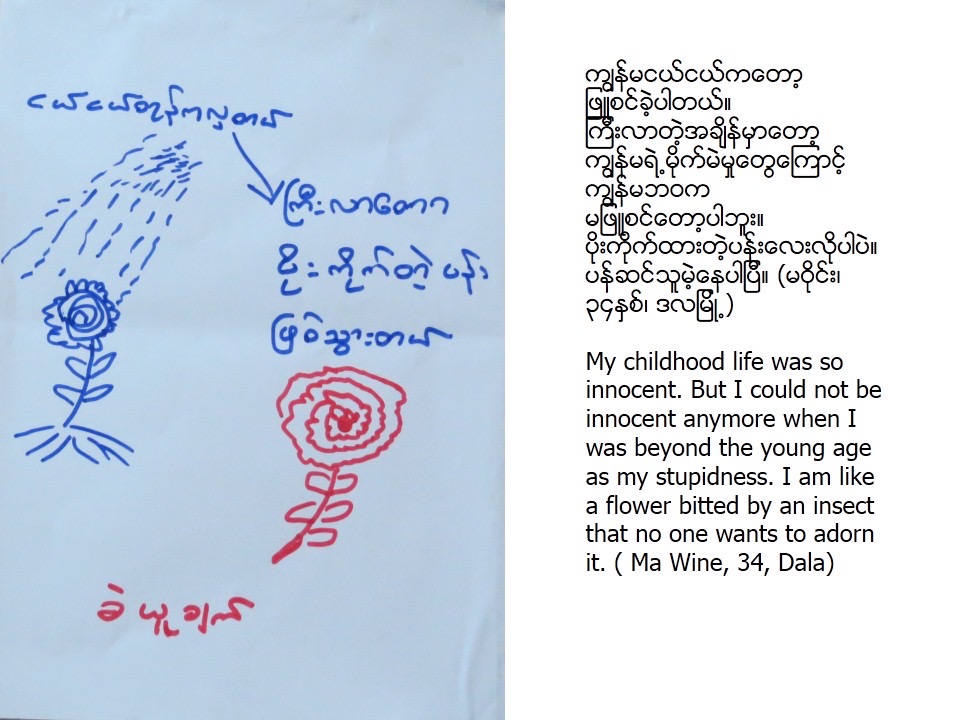 ငယ်ငယ်တုန်ကလှတယ်
ကြီးလာတော
ပိုးကိုက်တဲ့ပန်း
ဖြစ်သွားတယ်
ခဲယူချက်
ကျွန်မငယ်ငယ်ကတော့
ဖြူစင်ခဲ့ပါတယ်။
ကြီးလာတဲ့အချိန်မှာတော့
ကျွန်မရဲ့မိုက်မဲမှုတွေကြောင့်
ကျွန်မဘဝက
မဖြူစင်တော့ပါဘူး။
ပိုးကိုက်ထားတဲ့ပန်းလေးလိုပါပဲ။
ပန်ဆင်သူမဲ့နေပါပြီ။ (မဝိုင်း၊
၃၄နှစ်၊ ဒလမြို့)
My childhood life was so
innocent. But I could not be
innocent anymore when I
was beyond the young age
as my stupidness. I am like
a flower bitted by an insect
that no one wants to adorn
it. ( Ma Wine, 34, Dala)